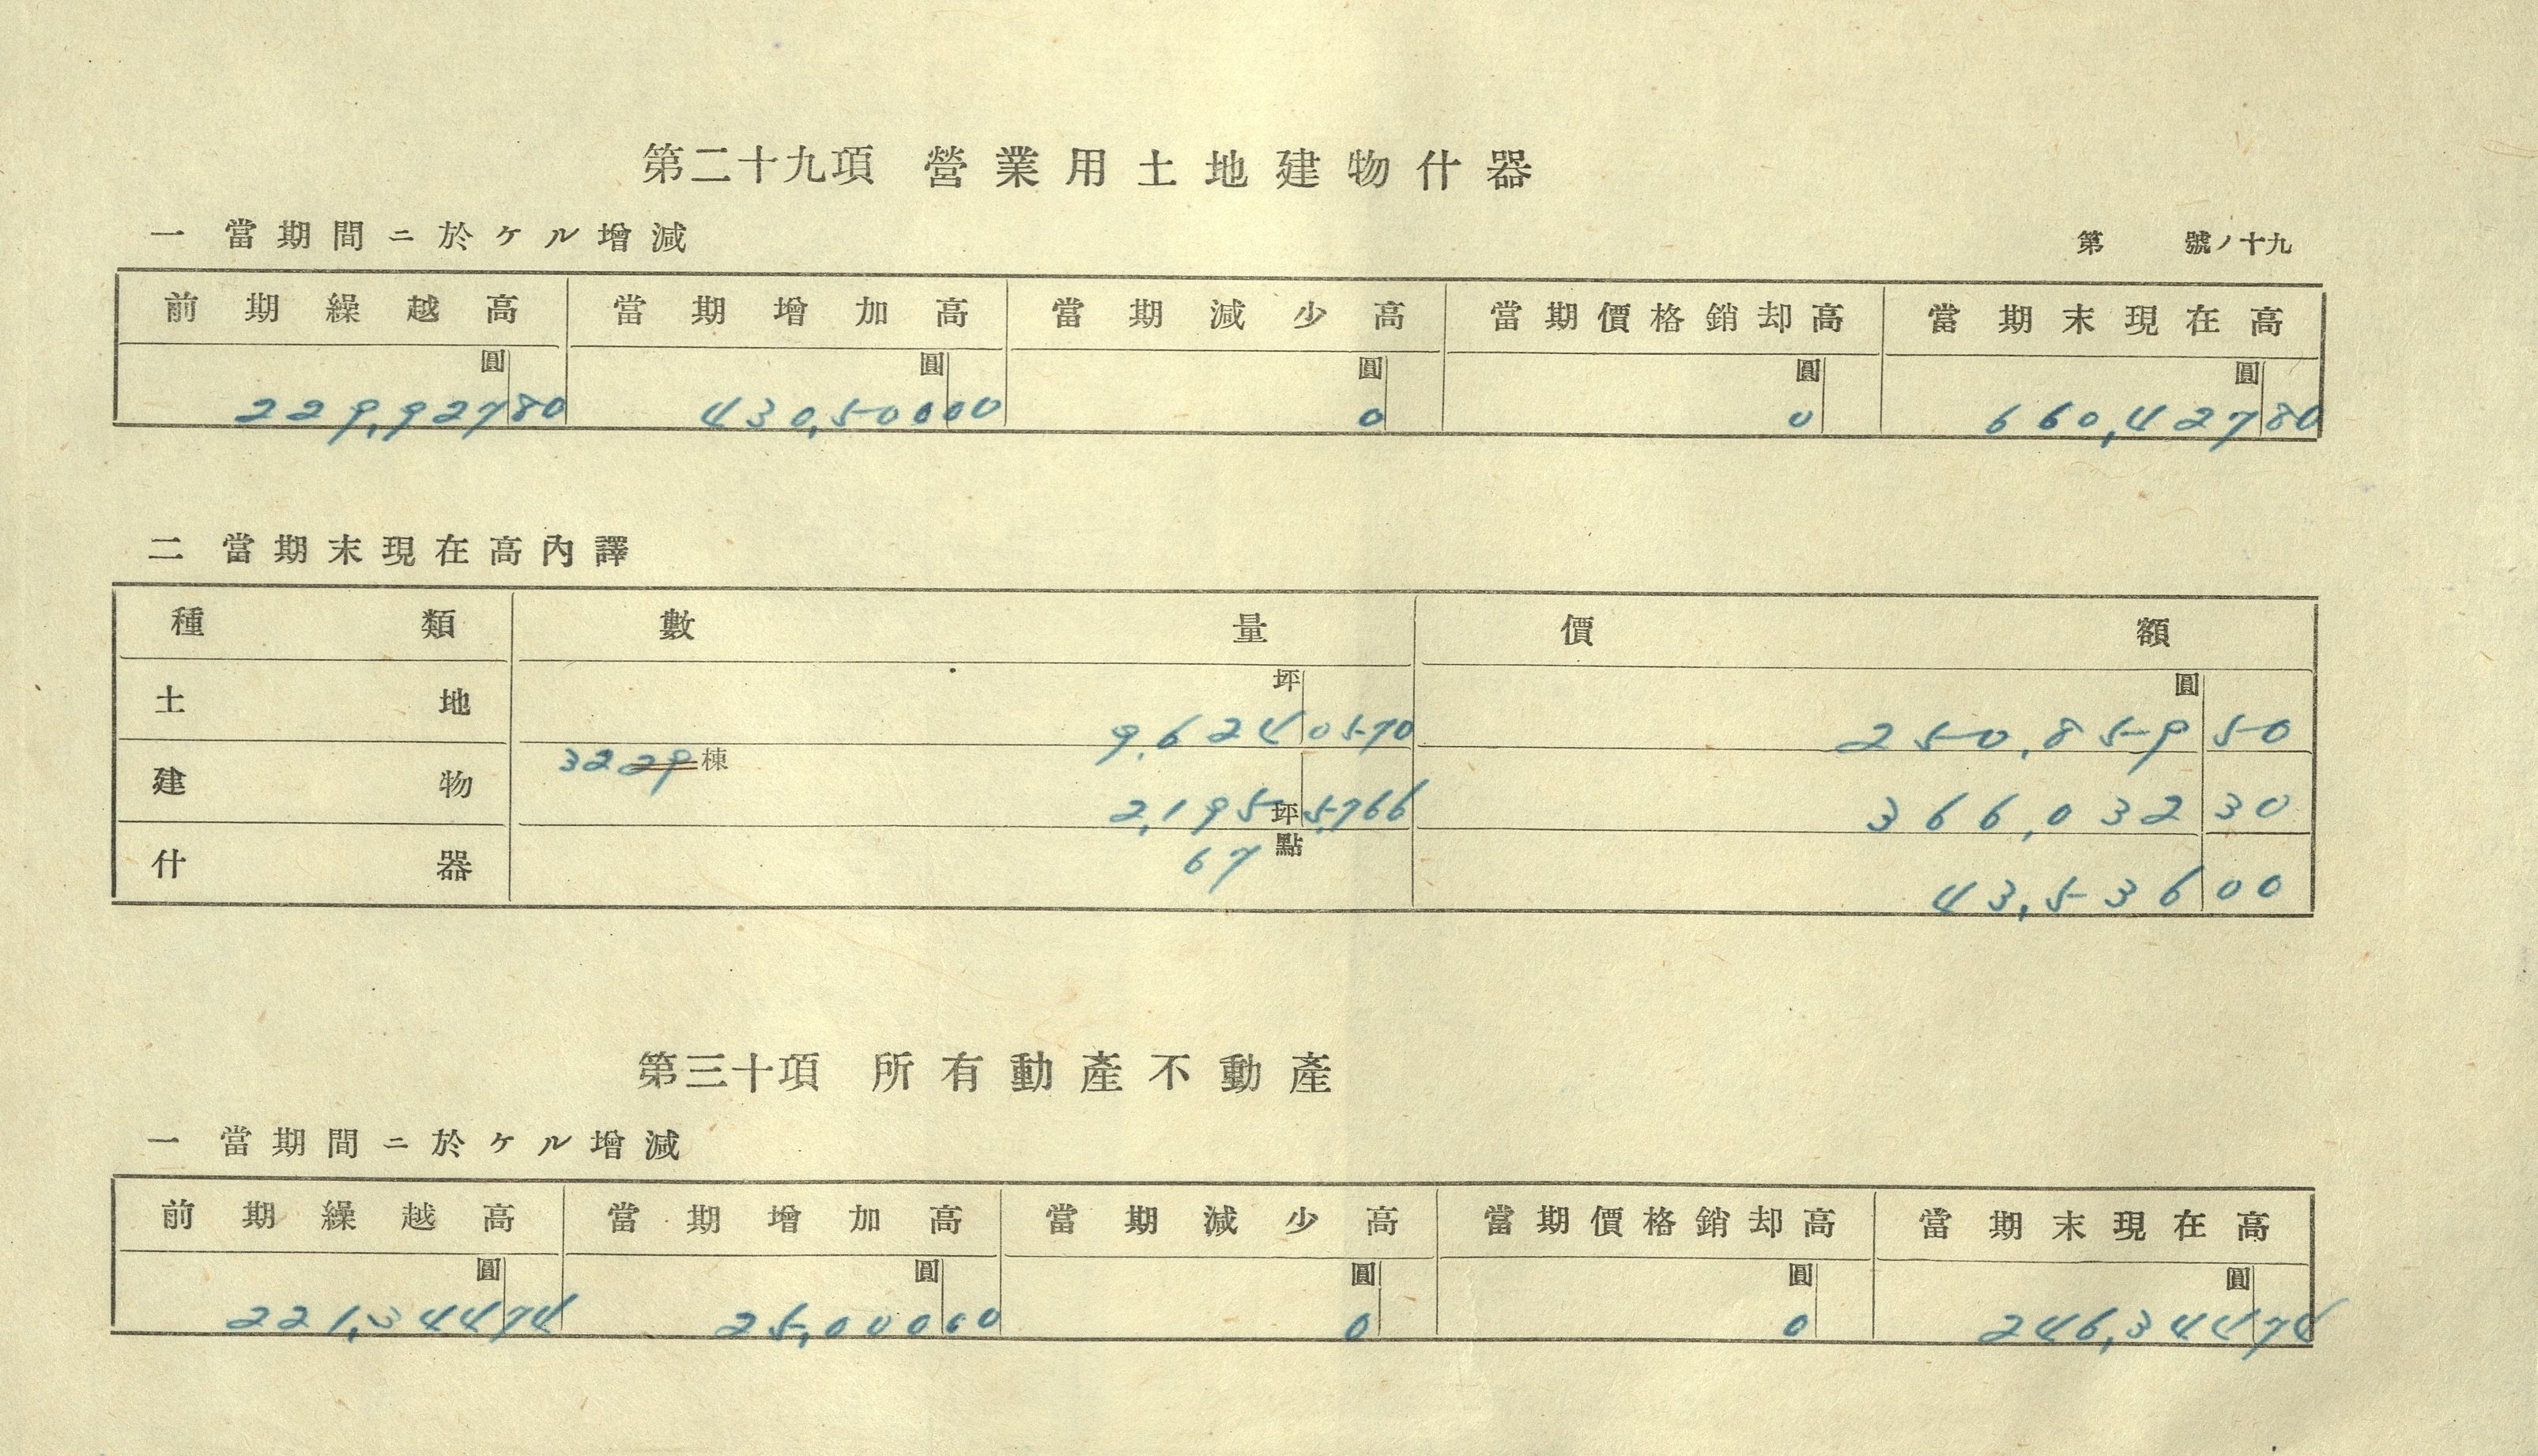 第二十九項 營業用土地建物什器
一 當期間ニ於ケル增減
第 號ノ十九
前期繰越高 當期增加高 當期減少高 當期價格銷却高 當期末現在高
圓 圓 圓 圓 圓
229,927 80 430,500 00 0 0 660,427 80
二 當期末現在高內譯
種類 數量 價額
坪 圓
土地 9,624 0570 250,859 50
建物 32 29 棟 2,195 坪 5766 366,032 30
什器 67 點 43,536 00
第三十項 所有動產不動產
一 當期間ニ於ケル增減
前期繰越高 當期增加高 當期減少高 當期價格銷却高 當期末現在高
圓 圓 圓 圓 圓
221,344 74 25,000 00 0 0 246,344 74